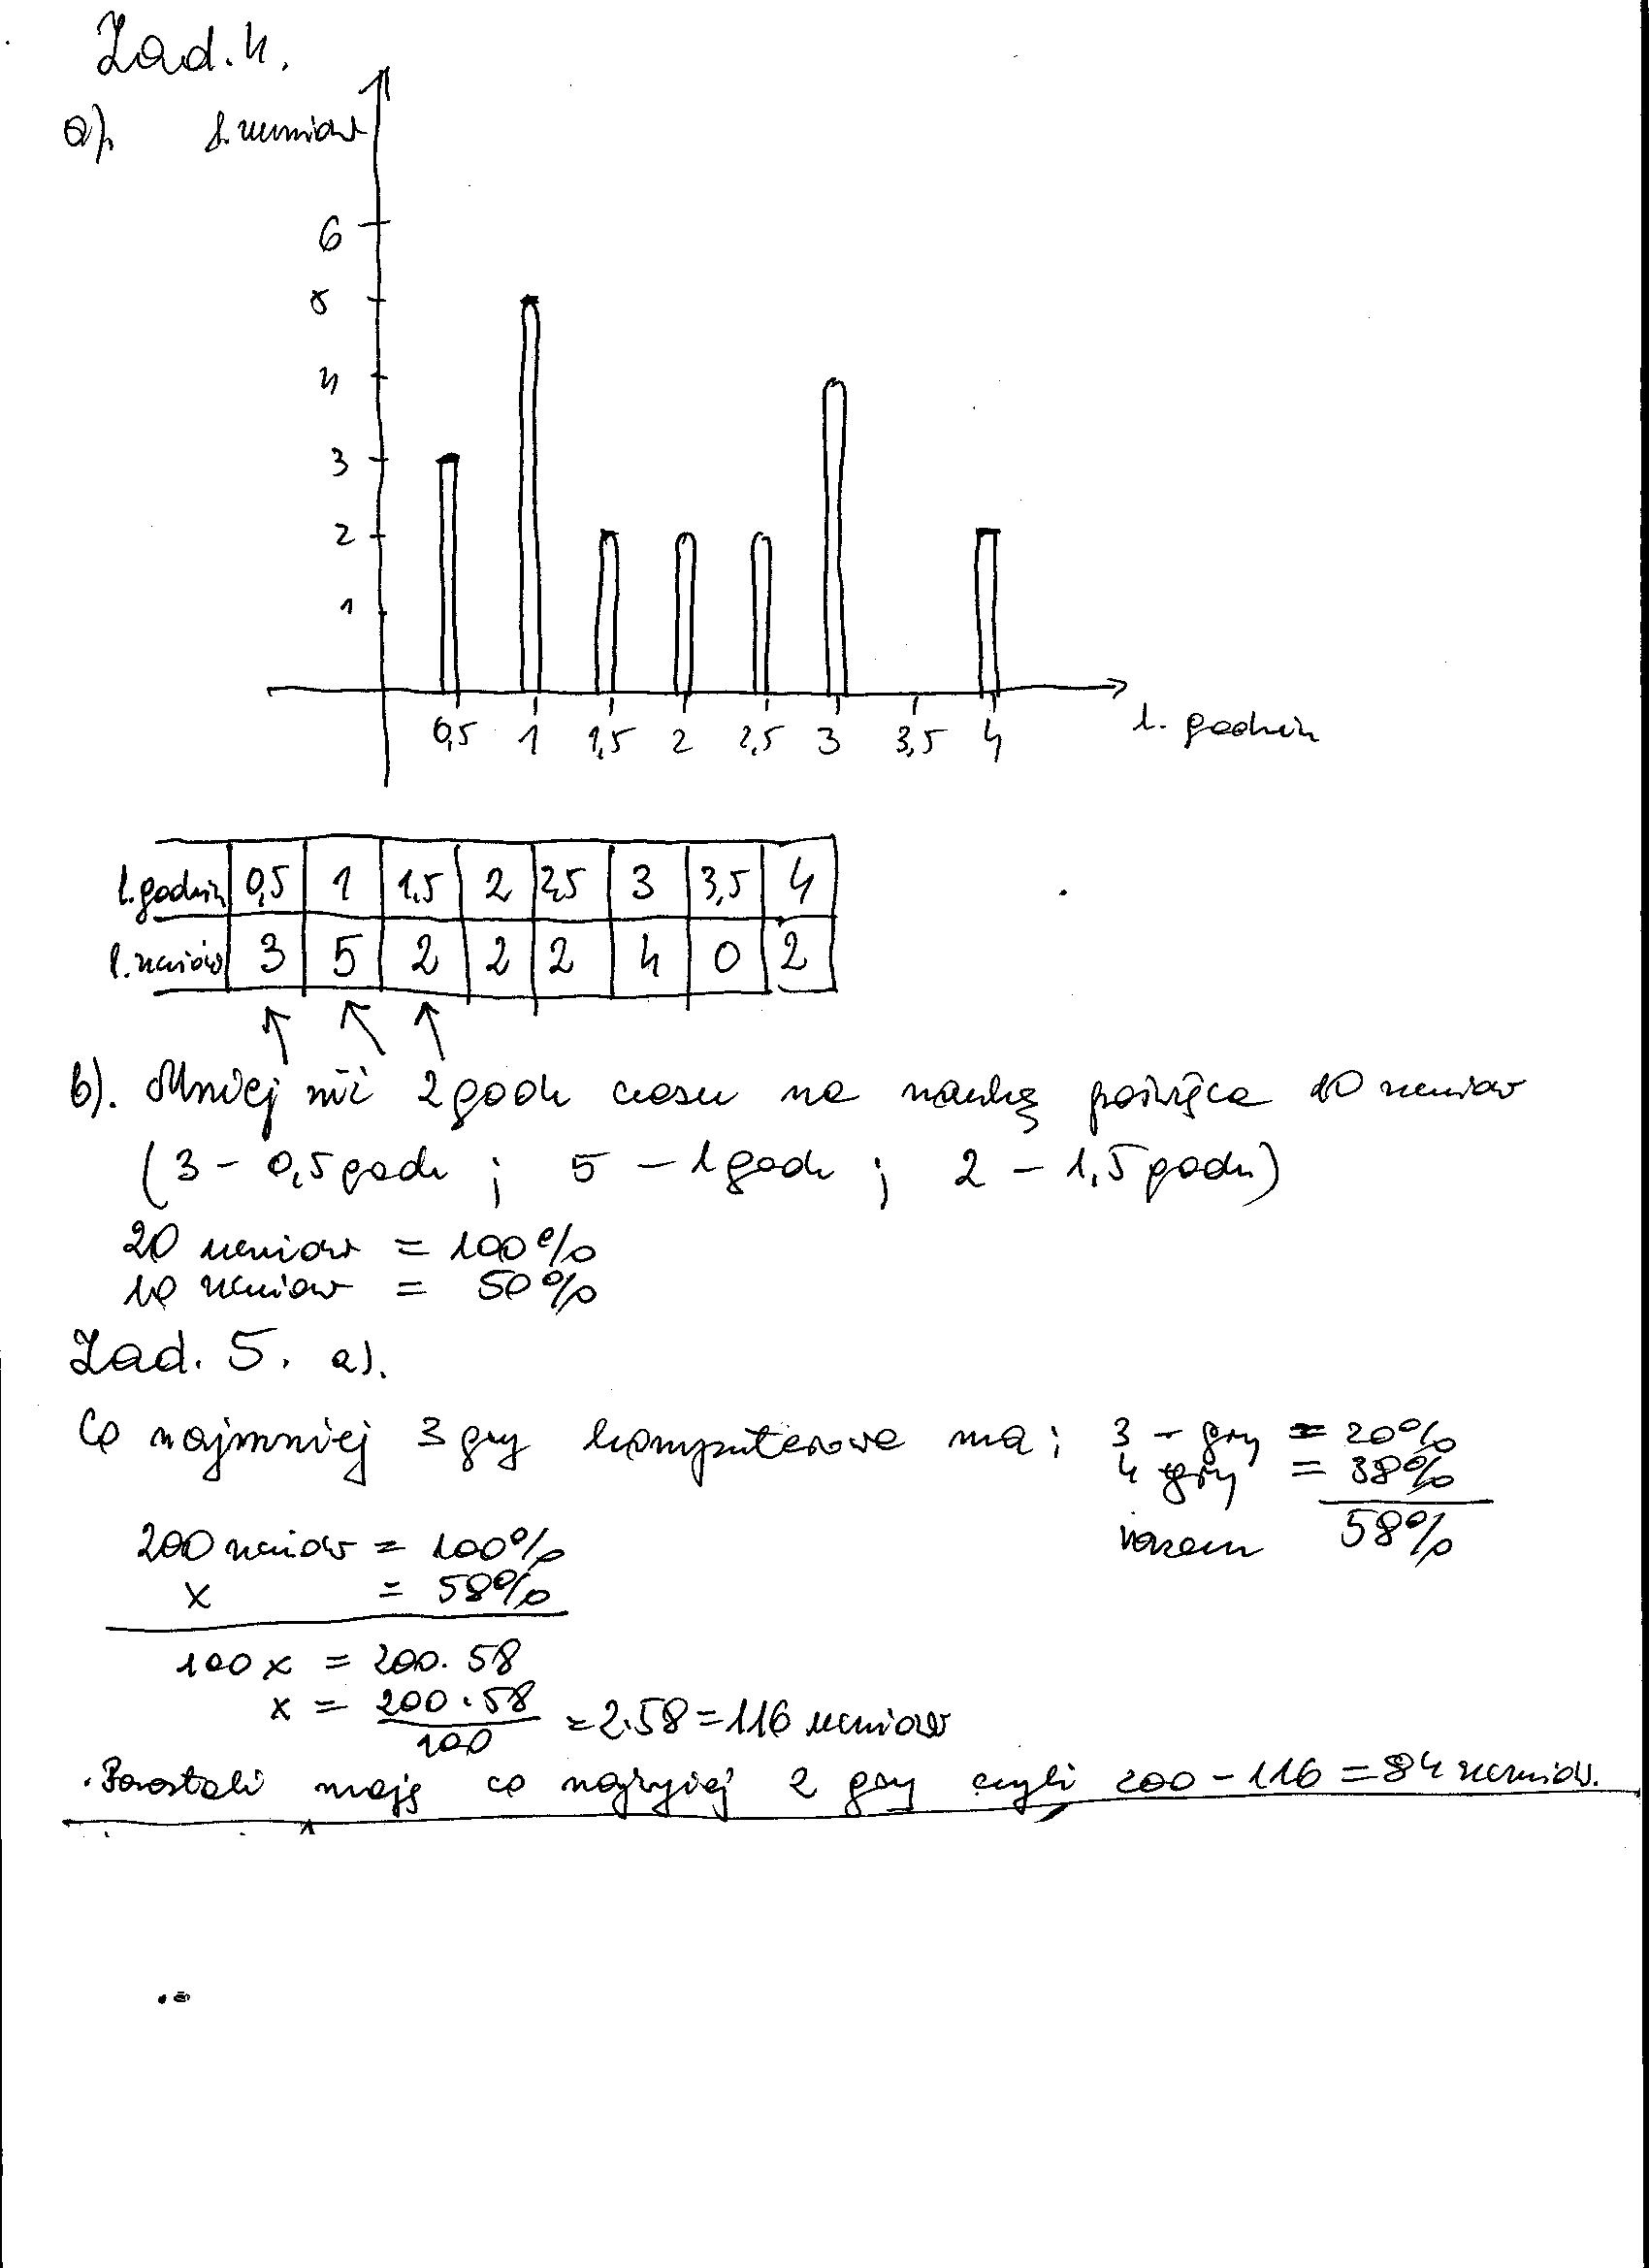 Zad. 4.
a).
l. uczniów
6
5
4
3
2
1
0,5 1 1,5 2 2,5 3 3,5 4
l. godzin
l. godzin 0,5 1 1,5 2 2,5 3 3,5 4
l. uczniów 3 5 2 2 2 4 0 2
b). Mniej niż 2 godz czasu na naukę poświęca 10 uczniów
(3 - 0,5 godz ; 5 - 1 godz ; 2 - 1,5 godz)
20 uczniów = 100%
10 uczniów = 50%
Zad. 5. a).
Co najmniej 3 gry komputerowe ma ; 3 - gry = 20%
4 gry = 38%
razem 58%
200 uczniów = 100%
x = 58%
100 x = 200 · 58
x = 200 · 58 / 100 = 2 · 58 = 116 uczniów
Pozostali mają co najwyżej 2 gry czyli 200 - 116 = 84 uczniów.